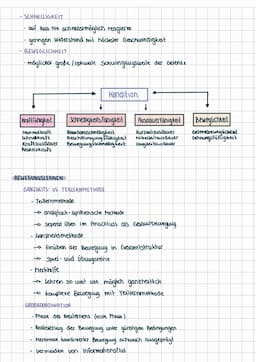 - SCHNELLIGKEIT
- auf Reiz hin schnellstmöglich reagieren
- geringen Widerstand mit höchster Geschwindigkeit
- BEWEGLICHKEIT
- möglichst große / optimale Schwingungsweite der Gelenke
Kondition
Kraftfähigkeit Schnelligkeitsfähigkeit Ausdauerfähigkeit Beweglichkeit
Maximalkraft Reaktionsschnelligkeit Kurzzeitausdauer Gelenkbeweglichkeit
Schnellkraft Beschleunigungsfähigkeit Mittelzeitausdauer Dehnungsfähigkeit
Kraftausdauer Bewegungsschnelligkeit Langzeitausdauer
Reaktivkraft
BEWEGUNGSLERNEN
GANZHEITS- VS TEILLERNMETHODE
- Teillernmethode
→ analytisch-synthetische Methode
→ separat üben im Anschluss als Gesamtbewegung
- Ganzheitsmethode
→ Einüben der Bewegung in Gesamtstruktur
→ Spiel- und Übungsreihe
- Merkhilfe
→ Lehren so weit wie möglich ganzheitlich
→ komplexe Bewegung mit Teillernmethode
GROBKOORDINATION
- Phase des Neulernens (erste Phase)
- Realisierung der Bewegung unter günstigen Bedingungen
- Merkmal koordinierter Bewegung schwach ausgeprägt
- vermeiden von Informationsflut